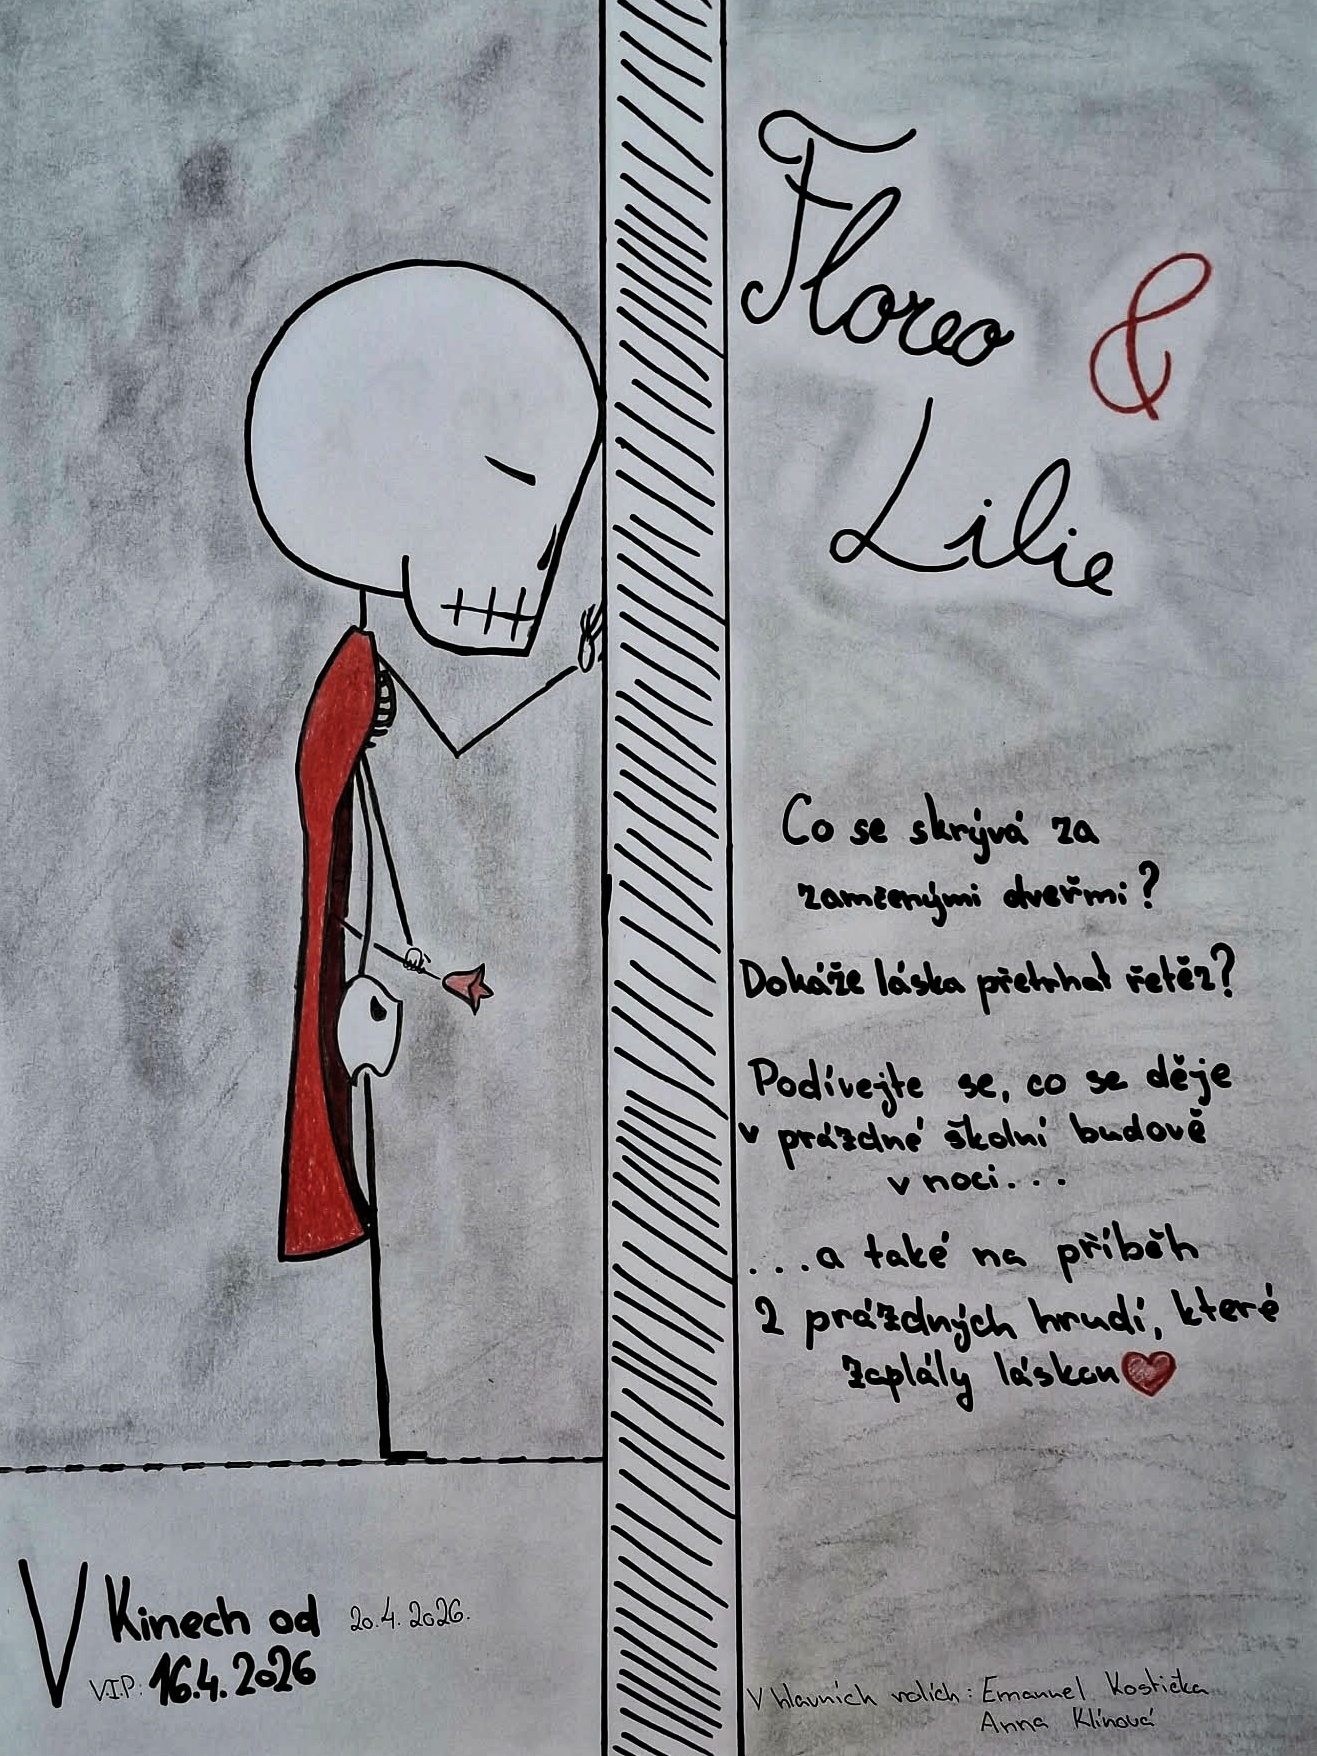 Floreo &
Lilie
Co se skrývá za
zamčenými dveřmi?
Dokáže láska přetrhat řetěz?
Podívejte se, co se děje
v prázdné školní budově
v noci...
...a také na příběh
2 prázdných hrudí, které
zaplály láskou
V Kinech od 20.4.2026.
V.I.P: 16.4.2026
V hlavních rolích: Emanuel Kostička
Anna Klínová